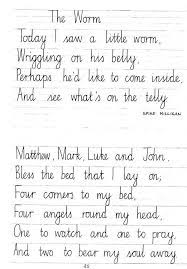 The Worm
Today I saw a little worm,
Wriggling on his belly,
Perhaps he'd like to come inside,
And see what's on the telly.
SPIKE MILLIGAN
Matthew, Mark, Luke and John,
Bless the bed that I lay on;
Four corners to my bed,
Four angels round my head,
One to watch and one to pray,
And two to bear my soul away.